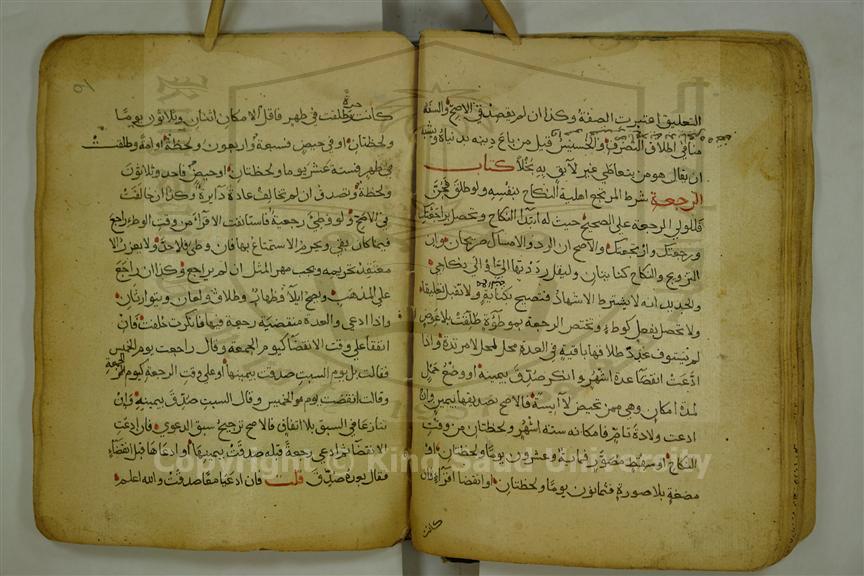 التعليق اعتبرت الصفة وكذا ان لم يقصد في الاصح والسفه
منافي اطلاق التصرف والخسيس قيل من باع دينه بدنياه ويشبه
ان يقال هو من يتعاطى غير لائق به بخلا كتاب
الرجعة شرط المرتجع اهلية النكاح بنفسه ولو طلق فجن
فللولي الرجعة على الصحيح حيث له ابتدا النكاح وتحصل براجعتك
ورجعتك وارتجعتك والاصح ان الرد والامساك صريحان وان
التزويج والنكاح كنايتان وليقل رددتها اليّ او الى نكاحي
والجديد انه لا يشترط الاشهاد فتصح بكناية ولا تقبل تعليقا
ولا تحصل بفعل كوطء وتختص الرجعة بموطوءة طلقت بلا عوض
لم يستوف عدد طلاقها باقية في العدة محل لحل لا مرتدة واذا
ادعت انقضا عدة اشهر وانكر صدق بيمينه او وضع حمل
لمدة امكان وهي ممن تحيض لا آيسة فالاصح تصديقها بيمين وان
ادعت ولادة تام فامكانه ستة اشهر ولحظتان من وقت
النكاح او سقط مصور فمائة وعشرون يوما ولحظتان او
مضغة بلا صورة فثمانون يوما ولحظتان او انقضا اقراء فان
كانت
كانت حرة وطلقت في طهر فاقل الامكان اثنان وثلاثون يوما
ولحظتان او في حيض فسبعة واربعون ولحظة او امة وطلقت
في طهر فستة عشر يوما ولحظتان او حيض فاحد وثلاثون
ولحظة وتصدق ان لم تخالف عادة دايرة وكذا ان خالفت
في الاصح ولو وطئ رجعية فاستانفت الاقرآ من وقت الوطء راجع
فيما كان بقي ويحرم الاستمتاع بها فان وطئ فلا حد ولا يعزر الا
معتقد تحريمه ويجب مهر المثل ان لم يراجع وكذا ان راجع
على المذهب ويصح ايلاء وظهار وطلاق ولعان ويتوارثان
واذا ادعى والعدة منقضية رجعة فيها فانكرت فان
اتفقا على وقت الانقضا كيوم الجمعة وقال راجعت يوم الخميس
فقالت بل يوم السبت صدقت بيمينها او على وقت الرجعة كيوم الجمعة
وقالت انقضت يوم الخميس وقال السبت صدق بيمينه وان
تنازعا في السبق بلا اتفاق فالاصح ترجيح سبق الدعوى فان ادعت
الانقضا ثم ادعى رجعة قبله صدقت بيمينها او ادعاها قبل انقضاء
فقال بعده صدق قلت فان ادعيا معا صدقت والله اعلم
Copyright © King Saud University